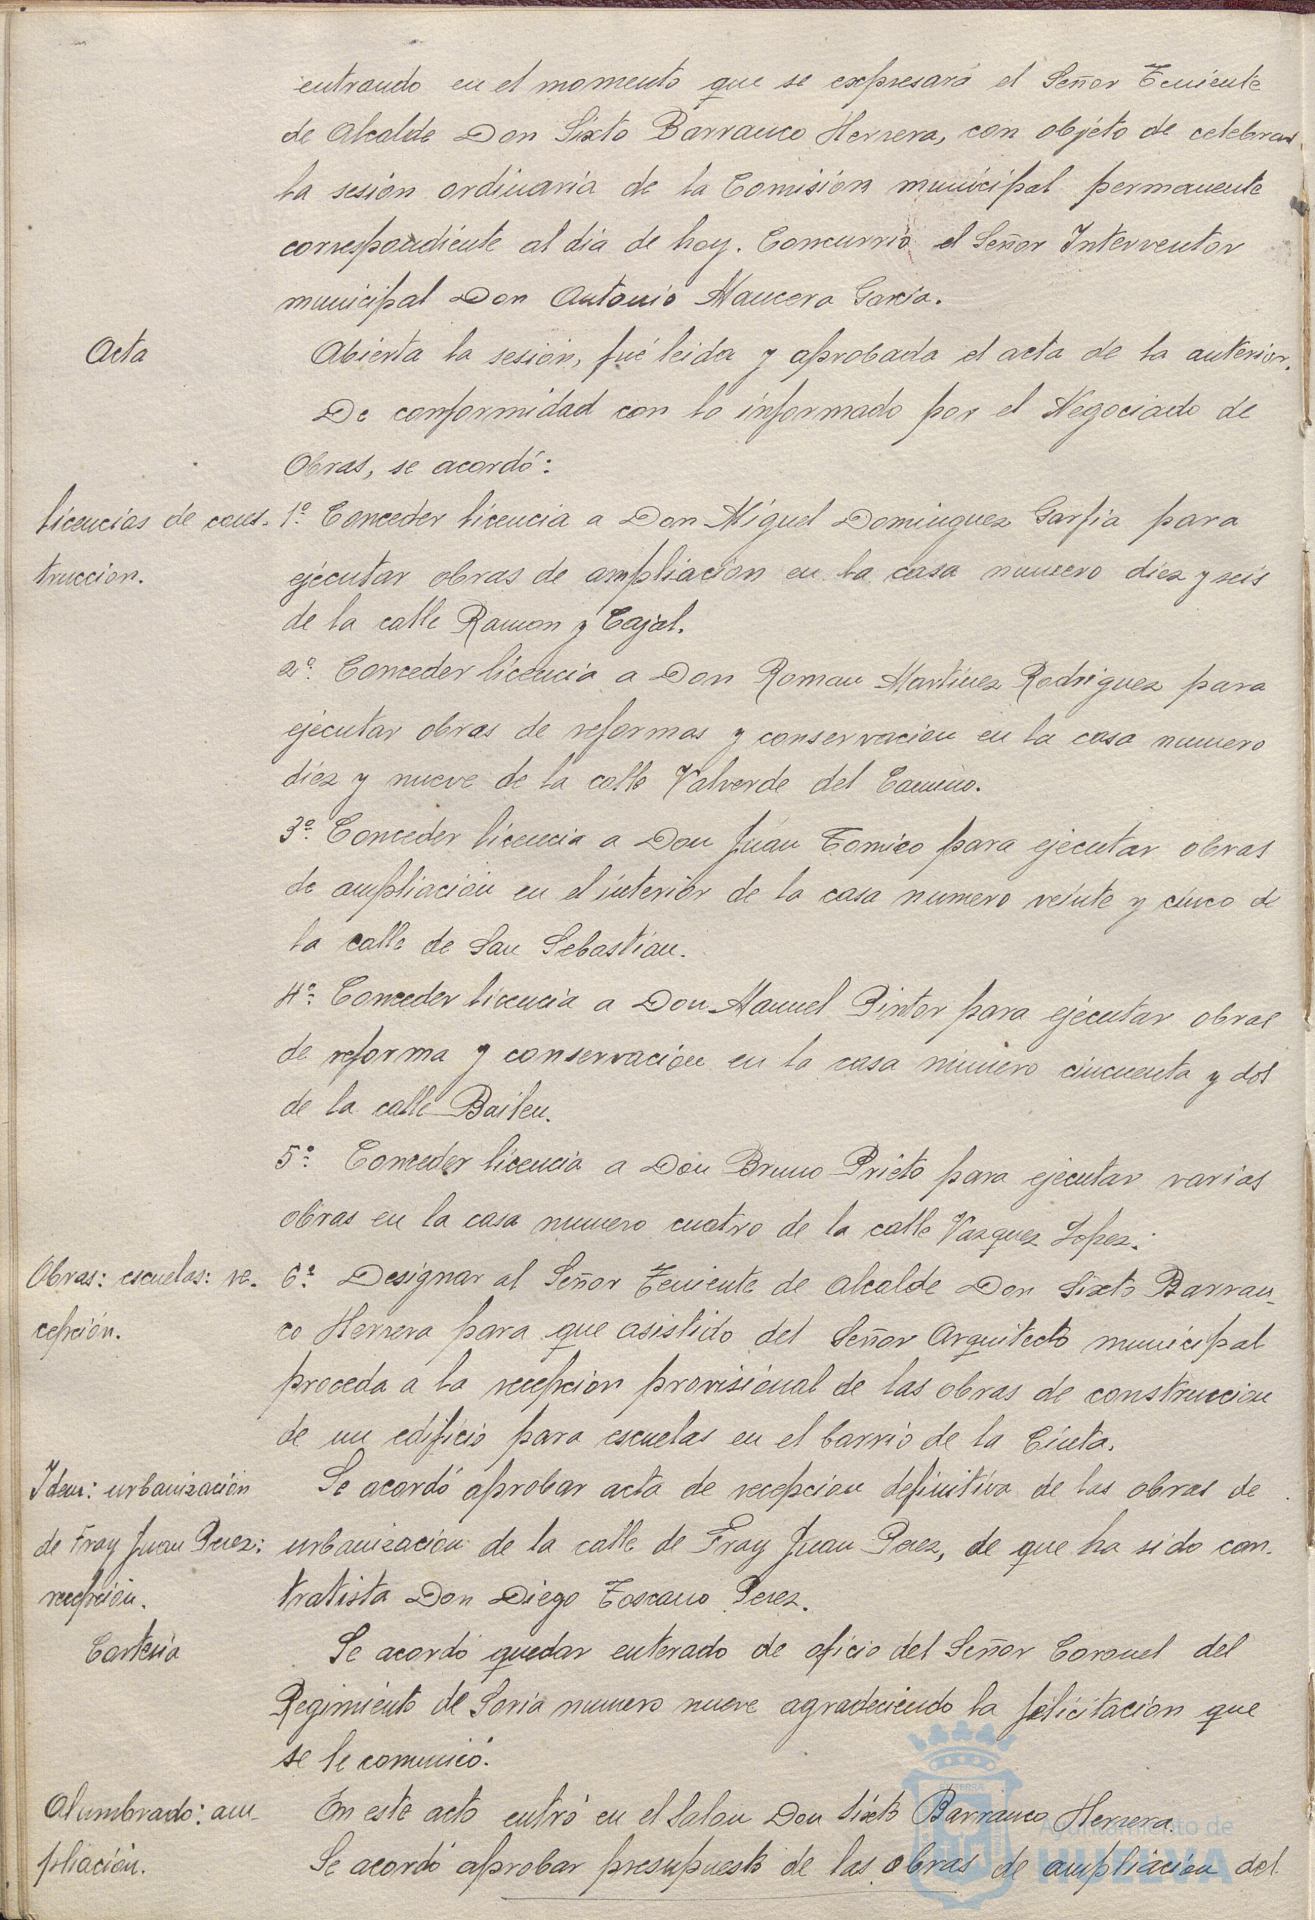 entrando en el momento que se expresará el Señor Teniente
de Alcalde Don Sixto Barranco Herrera, con objeto de celebrar
la sesión ordinaria de la Comisión municipal permanente
correspondiente al dia de hoy. Concurrió el Señor Interventor
municipal Don Antonio Mancera Garcia.
Acta
Abierta la sesión, fué leida y aprobada el acta de la anterior.
De conformidad con lo informado por el Negociado de
Obras, se acordó:
licencias de cons-
trucción.
1º Conceder licencia a Don Miguel Dominguez Garfia para
ejecutar obras de ampliacion en la casa numero diez y seis
de la calle Ramon y Cajal.
2º Conceder licencia a Don Roman Martinez Rodriguez para
ejecutar obras de reformas y conservacion en la casa numero
diez y nueve de la calle Valverde del Camino.
3º Conceder licencia a Don Juan Tomico para ejecutar obras
de ampliación en el interior de la casa numero veinte y cinco de
la calle de San Sebastian.
4º Conceder licencia a Don Manuel Pintor para ejecutar obras
de reforma y conservacion en la casa numero cincuenta y dos
de la calle Bailen.
5º Conceder licencia a Don Bruno Prieto para ejecutar varias
obras en la casa numero cuatro de la calle Vazquez Lopez.
Obras: escuelas: re-
cepción.
6º Designar al Señor Teniente de Alcalde Don Sixto Barran-
co Herrera para que asistido del Señor Arquitecto municipal
proceda a la recepcion provisional de las obras de construccion
de un edificio para escuelas en el barrio de la Cinta.
Idem: urbanización
de Fray Juan Perez:
recepción.
Se acordó aprobar acta de recepcion definitiva de las obras de
urbanizacion de la calle de Fray Juan Perez, de que ha sido con-
tratista Don Diego Toscano Perez.
Cortesia
Se acordó quedar enterado de oficio del Señor Coronel del
Regimiento de Soria numero nueve agradeciendo la felicitación que
se le comunicó.
Alumbrado: am
pliación.
En este acto entró en el Salon Don Sixto Barranco Herrera.
Se acordó aprobar presupuesto de las obras de ampliación del
Ayuntamiento de
HUELVA